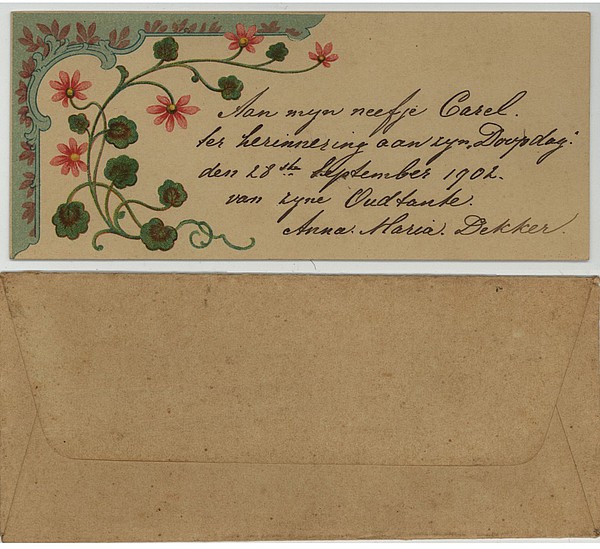 Aan myn neefje Carel.
ter herinnering aan zyn „Doopdag."
den 28ste September 1902.
van zyne Oudtante.
Anna. Maria. Dekker.